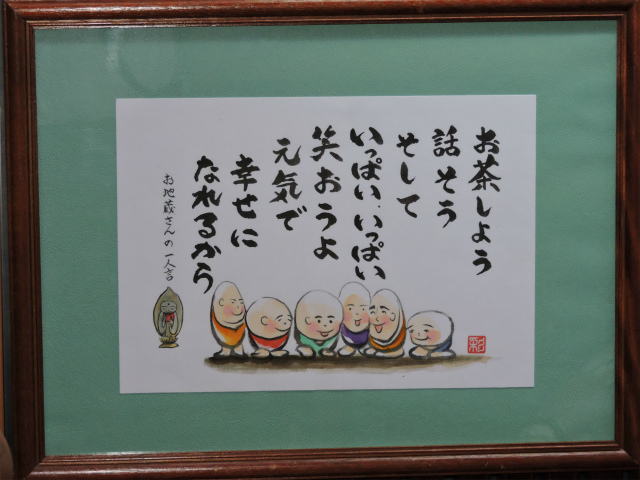 お茶しよう
話そう
そして
いっぱい、いっぱい
笑おうよ
元気で
幸せに
なれるから
お地蔵さんの一人言
彩